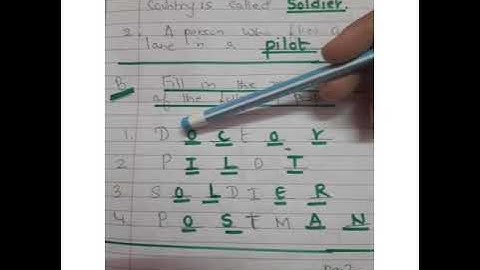 Country is called Soldier.
2. A person who flies a
lane is a pilot
B. Fill in the
of the
1. D o c t o r
2 P I L O T
3 S O L D I E R
4. P O S T M A N